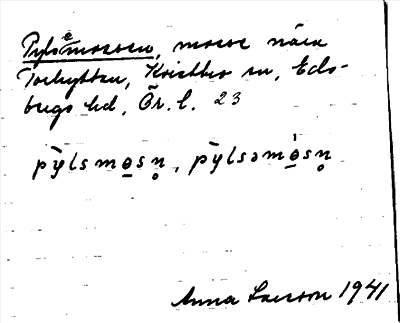 Pylsemossen, mosse nära
Torhyttan, Kristbro sn, Eds-
bergs hd, Ör. l. 23
pỳlsmo̲sn̥, pỳlsəmò̲sn̥
Anna Larsson 1941